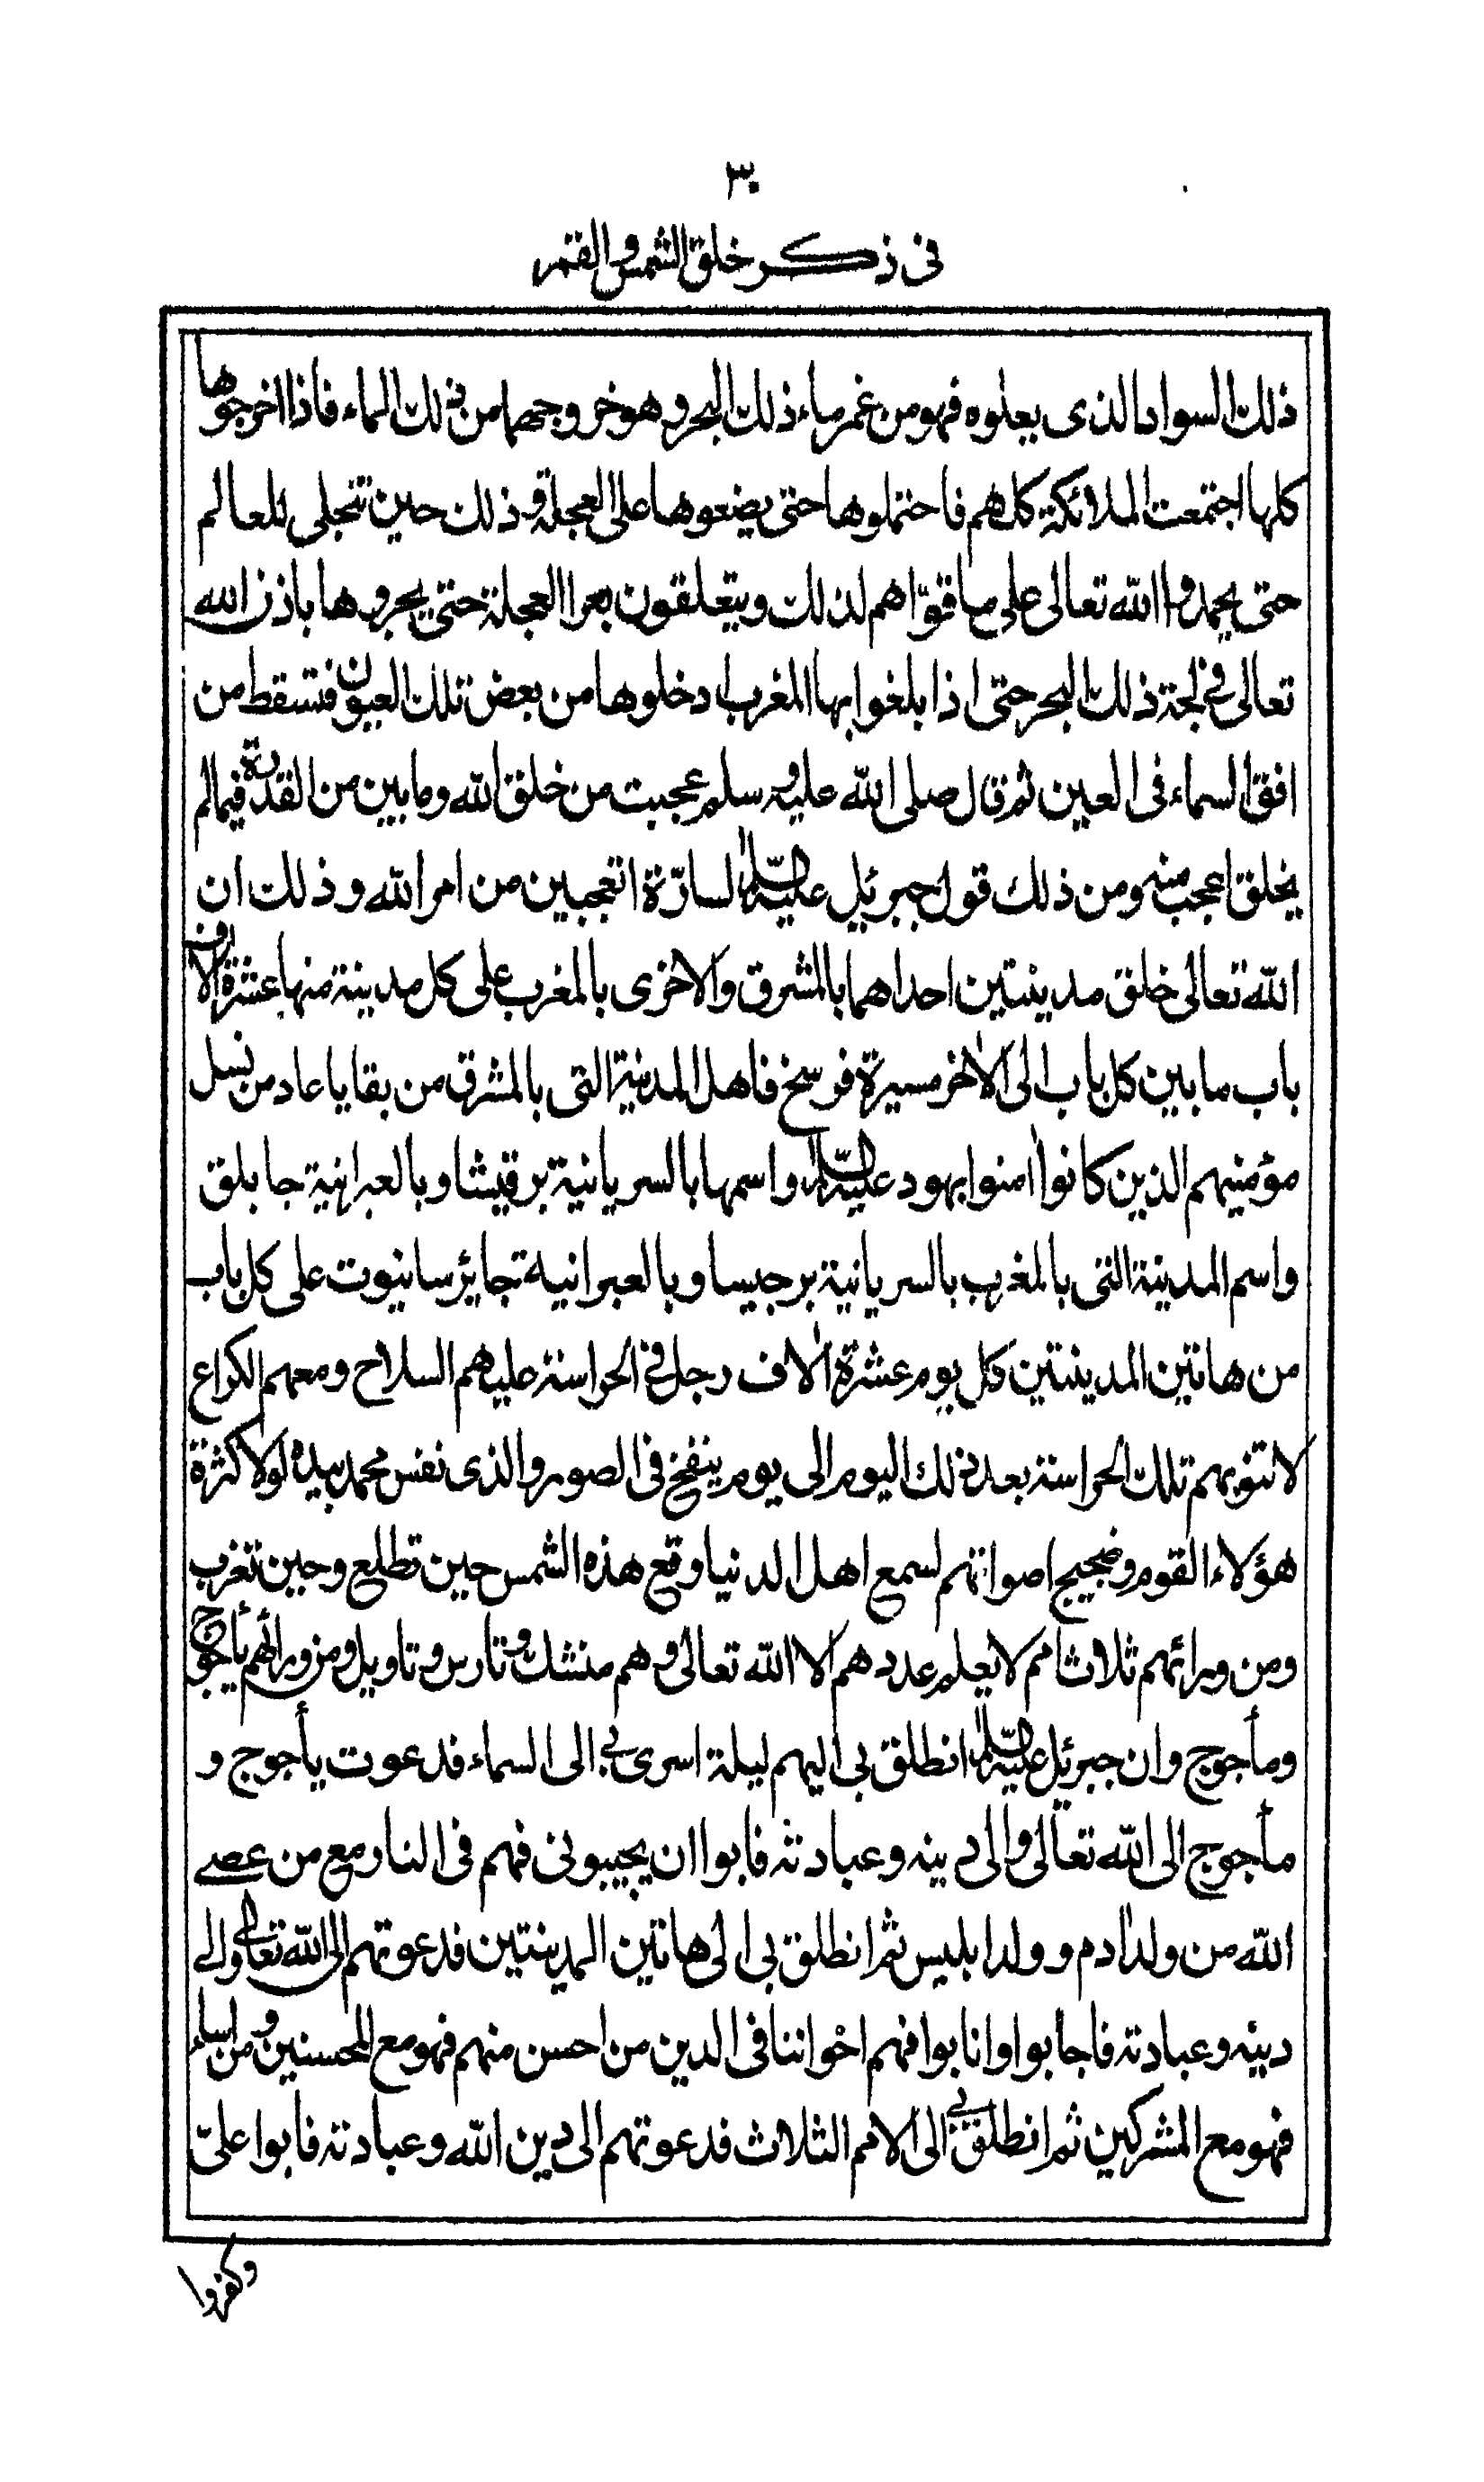 ٣٠
في ذكر خلق الشمس والقمر
ذلك السواد الذى يعلوه فهو من غمر ماء ذلك البحر وهو خروجهما من ذلك الماء فاذا اخرجوها
كلها اجتمعت الملائكة كلهم فاحتملوها حتى يضعوها على العجلة وذلك حين تتجلى للعالم
حتى يحمدوا الله تعالى على ما قوّاهم لذلك ويتعلقون بعرا العجلة حتى يجروها باذن الله
تعالى في لجة ذلك البحر حتى اذا بلغوا بها المغرب ادخلوها من بعض تلك العيون فتسقط من
افق السماء فى العين ثم قال صلى الله عليه وسلم عجبت من خلق الله وما بين من القدرة فيما لم
يخلق اعجب منه ومن ذلك قول جبرئيل عليه السلام لسارّة اتعجبين من امر الله وذلك ان
الله تعالى خلق مدينتين احداهما بالمشرق والاخرى بالمغرب على كل مدينة منها عشرة الاف
باب ما بين كل باب الى الاخر مسيرة فرسخ فاهل المدينة التى بالمشرق من بقايا عاد من نسل
مؤمنيهم الذين كانوا امنوا بهود عليه السلام واسمها بالسريانية برقيشا وبالعبرانية جابلق
واسم المدينة التى بالمغرب بالسريانية برجيسا وبالعبرانية تجايرسانيوت على كل باب
من هاتين المدينتين كل يوم عشرة الاف رجل في الحراسة عليهم السلاح ومعهم الكراع
لا تنوبهم تلك الحراسة بعد ذلك اليوم الى يوم ينفخ فى الصور والذى نفس محمد بيده لولا كثرة
هؤلاء القوم وضجيج اصواتهم لسمع اهل الدنيا وقع هذه الشمس حين تطلع وحين تغرب
ومن ورائهم ثلاث امم لا يعلم عددهم الا الله تعالى وهم منشك وتارس وتاويل ومن ورائهم يأجوج
ومأجوج وان جبرئيل عليه السلام انطلق بى اليهم ليلة اسرى بي الى السماء فدعوت يأجوج و
مأجوج الى الله تعالى والى دينه وعبادته فابوا ان يجيبونى فهم فى النار مع من عصے
الله من ولد ادم وولد ابليس ثم انطلق بى الى هاتين المدينتين فدعوتهم الى الله تعالى والے
دينه وعبادته فاجابوا وانابوا فهم اخواننا فى الدين من احسن منهم فهو مع المحسنين ومن اساء
فهو مع المشركين ثم انطلق بي الى الامم الثلاث فدعوتهم الى دين الله وعبادته فابوا علىّ
وكفروا